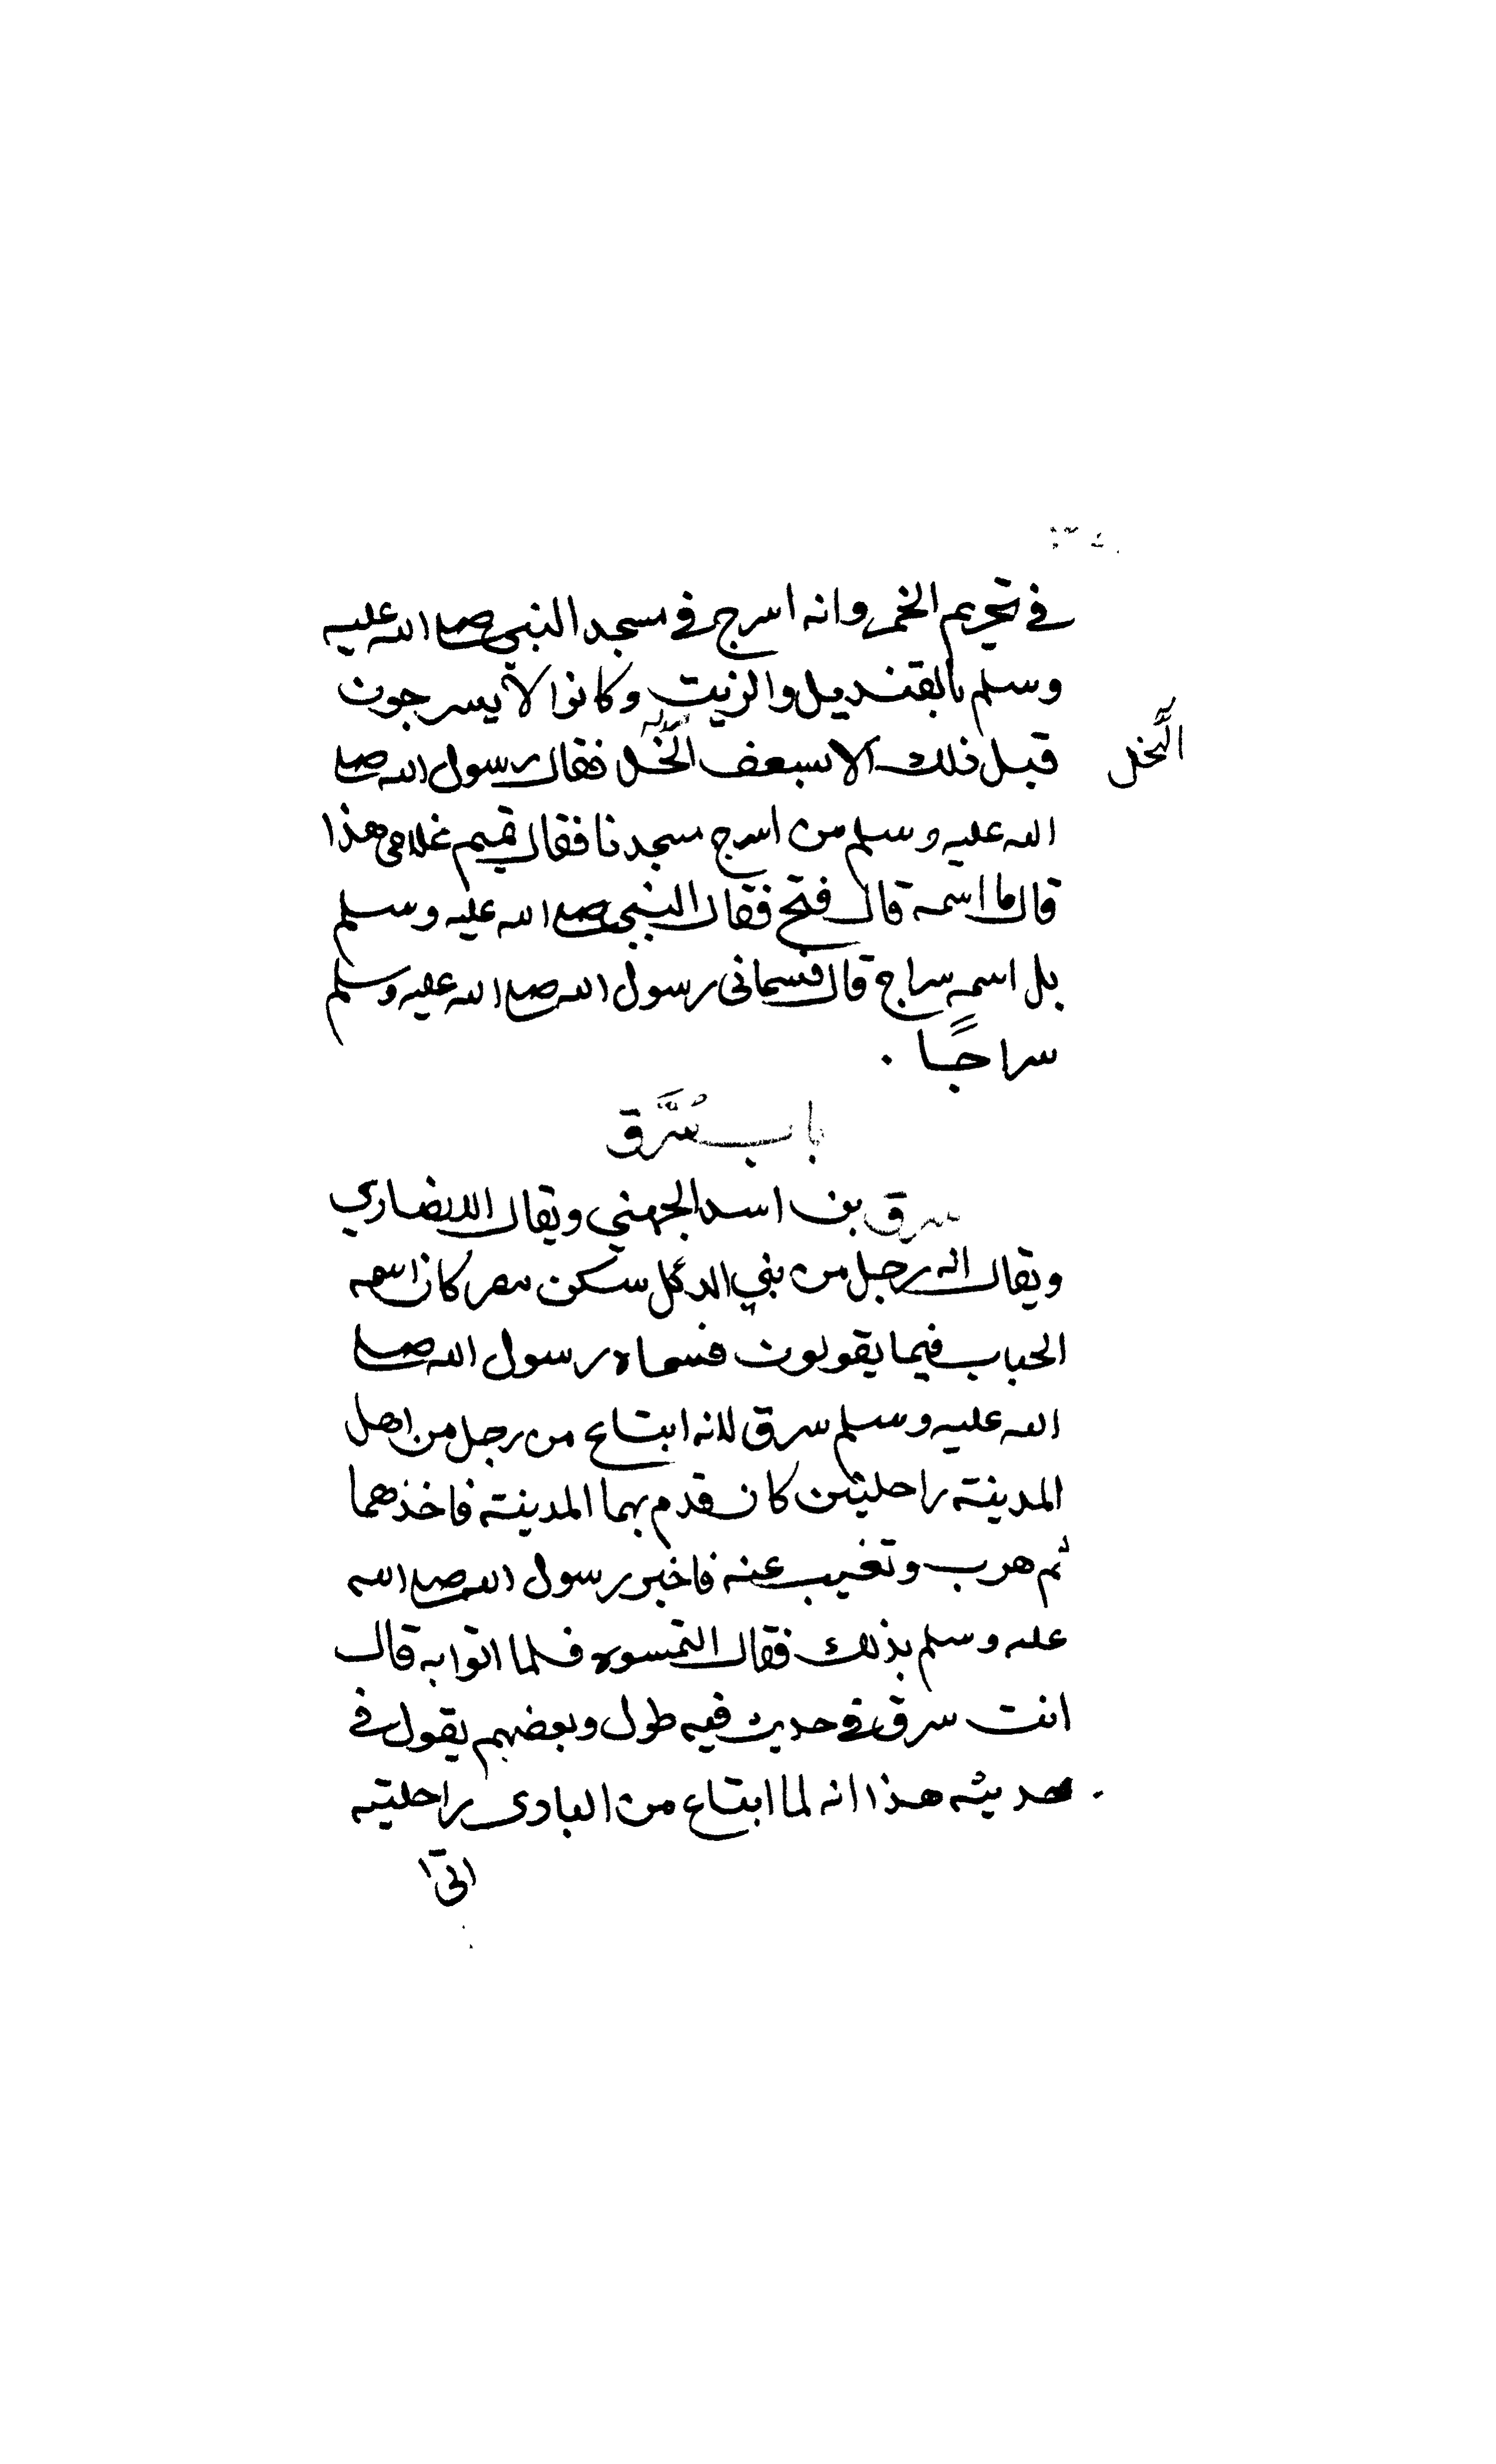 في تحريم الخمر وانه اسرج في مسجد النبي صلى الله عليه
وسلم بالقنديل والزيت وكانوا لا يسرجون
قبل ذلك الا بسعف النخل فقال رسول الله صلى
النخل
الله عليه وسلم من اسرج مسجدنا فقال تميم غلامي هذا
قال ما اسمه قال فتح فقال النبي صلى الله عليه وسلم
بل اسمه سراج قال فسماني رسول الله صلى الله عليه وسلم
سراجًا .
باب سُرَّق
سرق بن اسد الجهني ويقال الانصاري
ويقال انه رجل من بني الدئل سكن مصر كان اسمه
الحباب فيما يقولون فسماه رسول الله صلى
الله عليه وسلم سرق لانه ابتاع من رجل من اهل
المدينة راحلتين كان قدم بهما المدينة فاخذهما
ثم هرب وتغيب عنه فاخبر رسول الله صلى الله
عليه وسلم بذلك فقال التمسوه فلما اتوا به قال
انت سرق في حديث فيه طول وبعضهم يقول في
حديثه هذا انه لما ابتاع من البادي راحلتيه